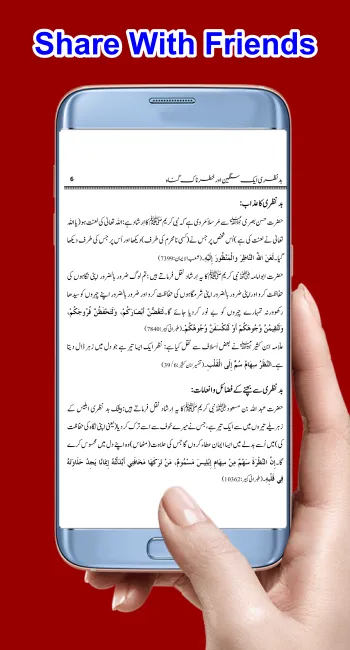 Share With Friends
بد نظری ایک سنگین اور خطرناک گناہ 6
بد نظری کا عذاب:
حضرت حسن بصری ﷫ سے مرسلاً مروی ہے کہ نبی کریم ﷺ کا ارشاد ہے: اللہ تعالیٰ کی لعنت ہو (یا اللہ
تعالیٰ نے لعنت کی ہے) اُس شخص پر جس نے (کسی نامحرم کی طرف) دیکھا اور اُس پر جس کی طرف دیکھا
گیا۔ لَعَنَ اللهُ النَّاظِرَ وَالْمَنْظُورَ إِلَيْهِ۔ (شعب الایمان: 7399)
حضرت ابوامامہ ﷜ نبی کریم ﷺ کا یہ ارشاد نقل فرماتے ہیں: تم لوگ ضرور بالضرور اپنی نگاہوں کی
حفاظت کرو اور ضرور بالضرور اپنی شرمگاہوں کی حفاظت کرو اور ضرور بالضرور اپنے چہروں کو سیدھا
رکھو ورنہ تمہارے چہروں کو بے نور کردیا جائے گا۔ لَتَغُضُّنَّ أَبْصَارَكُمْ، وَلَتَحْفَظُنَّ فُرُوجَكُمْ،
وَلَتُقِيمُنَّ وُجُوهَكُمْ أَوْ لَتُكْسَفَنَّ وُجُوهُكُمْ۔ (طبرانی کبیر: 7840)
علّامہ ابن کثیر ﷫ نے بعض اَسلاف سے نقل کیا ہے: نظر ایک ایسا تیر ہے جو دل میں زہر ڈال دیتا
ہے۔ النَّظَرُ سِهَامُ سُمٍّ إِلَى الْقَلْبِ۔ (تفسیر ابن کثیر: 6/39)
بد نظری سے بچنے کے فضائل و انعامات:
حضرت عبد اللہ بن مسعود ﷜ نبی کریم ﷺ کا یہ ارشاد نقل فرماتے ہیں: بیشک بد نظری ابلیس کے
زہریلے تیروں میں سے ایک تیر ہے، جس نے میرے خوف سے اسے ترک کر دیا (یعنی اپنی نگاہ کی حفاظت
کی) میں اُسے بدلے میں ایسا ایمان عطاء کروں گا جس کی حلاوت (مٹھاس) وہ اپنے دل میں محسوس کرے
گا۔ إِنَّ النَّظْرَةَ سَهْمٌ مِنْ سِهَامِ إِبْلِيسَ مَسْمُومٌ، مَنْ تَرَكَهَا مَخَافَتِي أَبْدَلْتُهُ إِيمَانًا يَجِدُ حَلَاوَتَهُ
فِي قَلْبِهِ۔ (طبرانی کبیر: 10362)